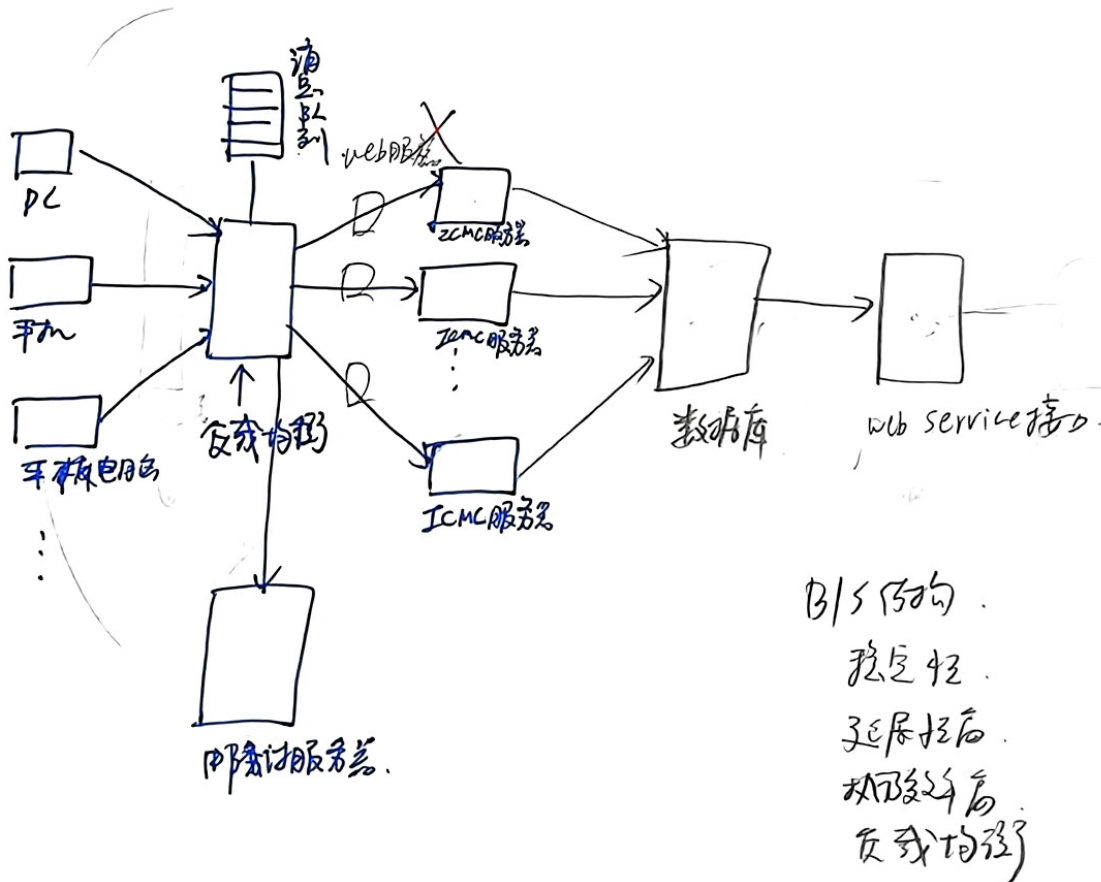 消息队列
PC
手机
平板电脑
负载均衡
web服务器
ICMC服务器
ICMC服务器
ICMC服务器
数据库
web service接口.
邮件服务器.
B/S结构.
稳定性.
延展性高.
执行效率高
负载均衡